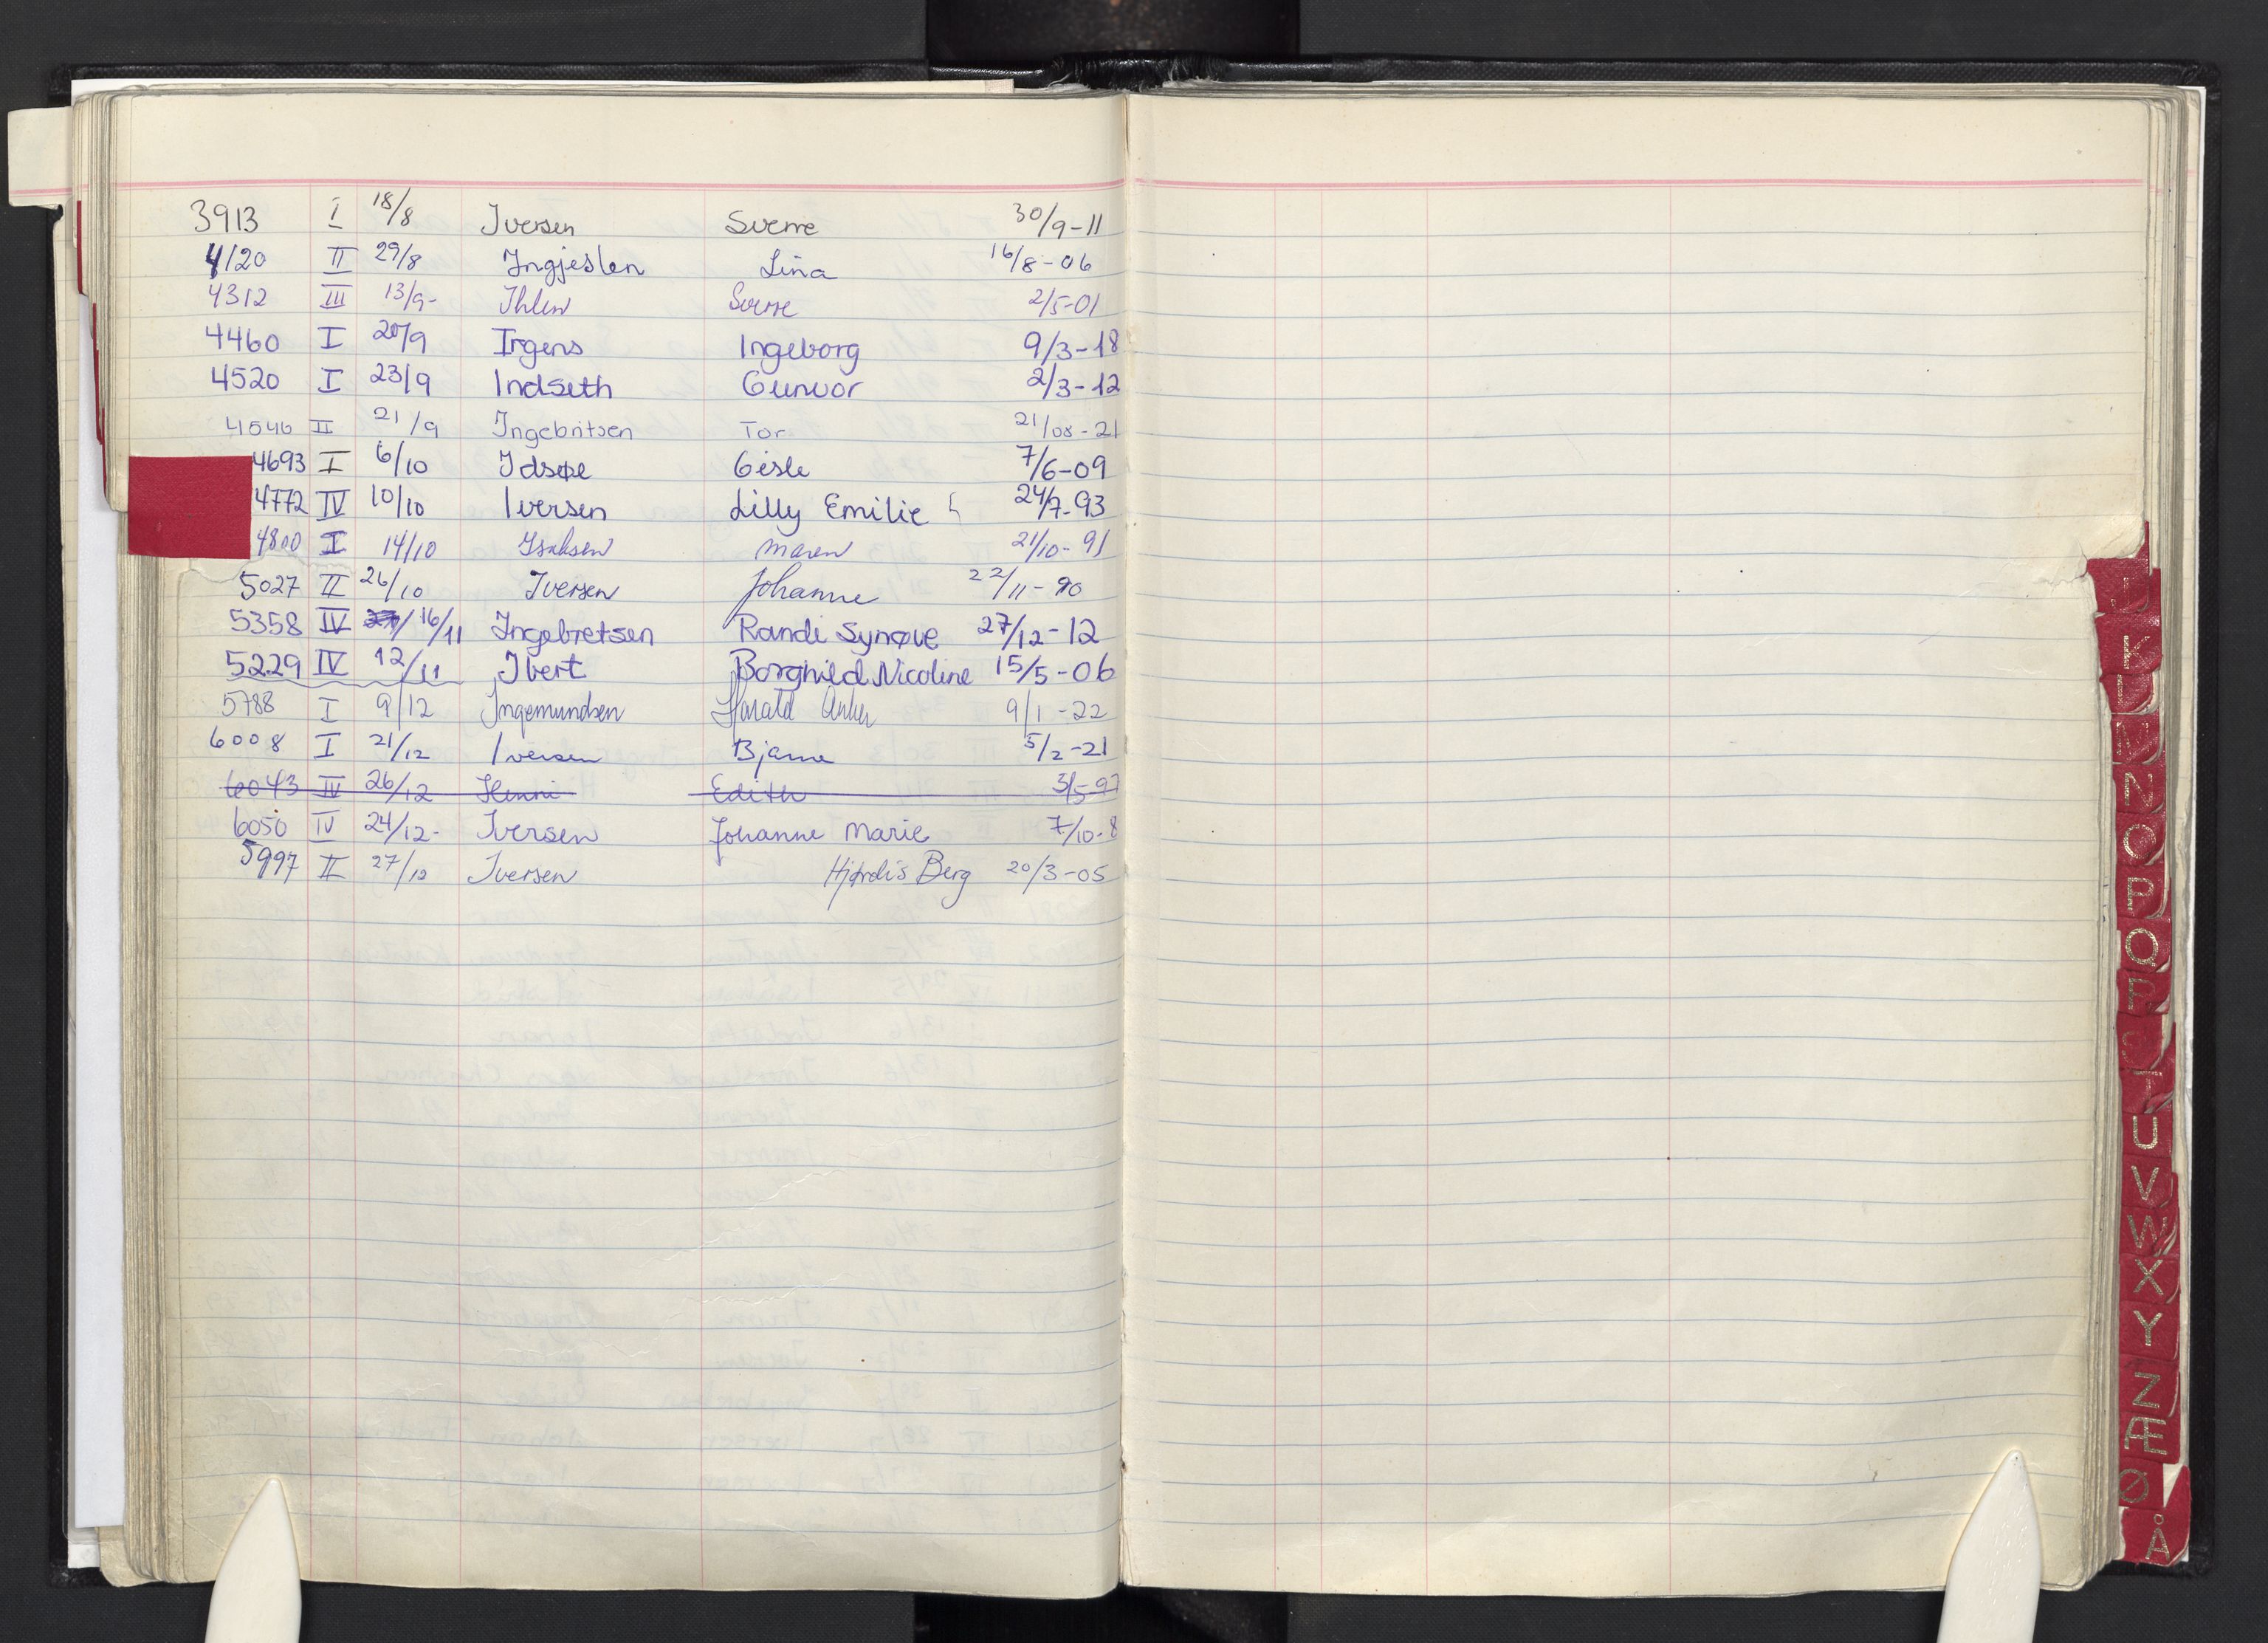 3913 I 18/8 Iversen Sverre 30/9-11
4120 II 29/8 Ingjeslen Lina 16/8-06
4312 III 13/9- Ihlen Sverre 2/5-01
4460 I 20/9 Irgens Ingeborg 9/3-18
4520 I 23/9 Indseth Gunvor 2/3-12
4546 II 21/9 Ingebritsen Tor 21/08-21
4693 I 6/10 Idsøe Gisle 7/6-09
4772 IV 10/10 Iversen Lilly Emilie 24/7-93
4800 I 14/10 Isaksen Maren 21/10-91
5027 II 26/10 Iversen Johanne 22/11-90
5358 IV 16/11 Ingebretsen Randi Synøve 27/12-12
5229 IV 12/11 Ibert Borghild Nicoline 15/5-06
5788 I 9/12 Ingemundsen Harald Anker 9/1-22
6008 I 21/12 Iversen Bjarne 5/2-21
6043 IV 26/12 Edith 3/5-97
6050 IV 24/12- Iversen Johanne Marie 7/10-8
5997 II 27/12 Iversen Hjørdis Berg 20/3-05
K
L
M
N
O
P
Q
R
S
T
U
V
W
X
Y
Z
Æ
Ø
Å